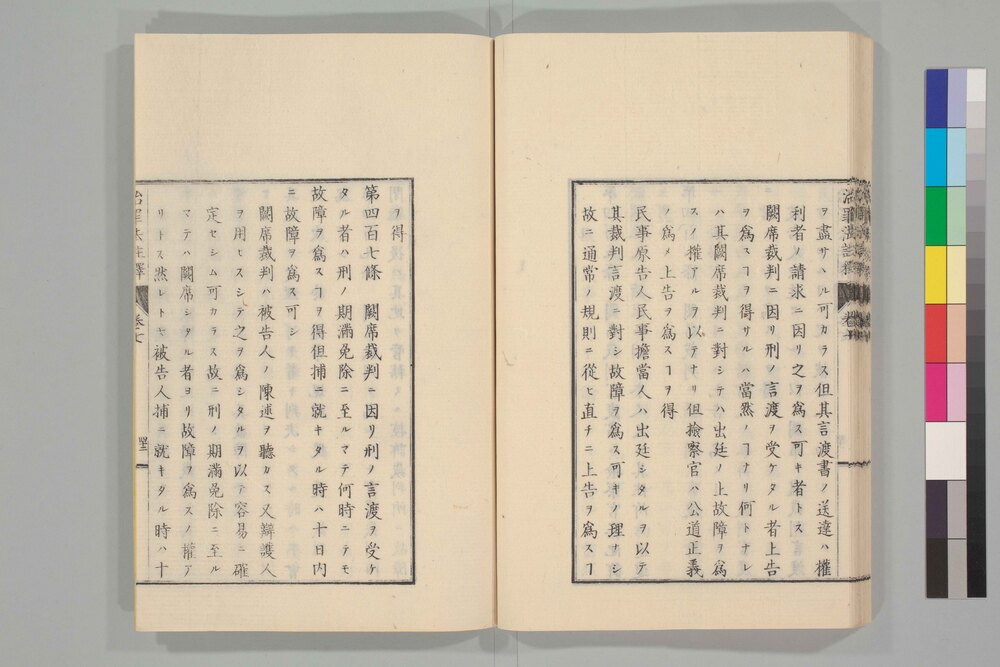 ヲ盡サヽル可カラス但其言渡書ノ送達ハ權
利者ノ請求ニ因リ之ヲ爲ス可キ者トス
闕席裁判ニ因リ刑ノ言渡ヲ受ケタル者上告
ヲ爲スヿヲ得サルハ當然ノヿナリ何トナレ
ハ其闕席裁判ニ對シテハ出廷ノ上故障ヲ爲
スノ權アルヲ以テナリ但撿察官ハ公道正義
ノ爲メ上告ヲ爲スヿヲ得
民事原告人民事擔當人ハ出廷シタルヲ以テ
其裁判言渡ニ對シ故障ヲ爲ス可キノ理ナシ
故ニ通常ノ規則ニ從ヒ直チニ上告ヲ爲スヿ
ヲ得
第四百七條 闕席裁判ニ因リ刑ノ言渡ヲ受ケ
タル者ハ刑ノ期滿免除ニ至ルマテ何時ニテモ
故障ヲ爲スヿヲ得但捕ニ就キタル時ハ十日内
ニ故障ヲ爲ス可シ
闕席裁判ハ被告人ノ陳述ヲ聽カス又辯護人
ヲ用ヒスシテ之ヲ爲シタルヲ以テ容易ニ確
定セシム可カラス故ニ刑ノ期滿免除ニ至ル
マテハ闕席シタル者ヨリ故障ヲ爲スノ權ア
リトス然レトモ被告人捕ニ就キタル時ハ十
治罪法註釋 卷七